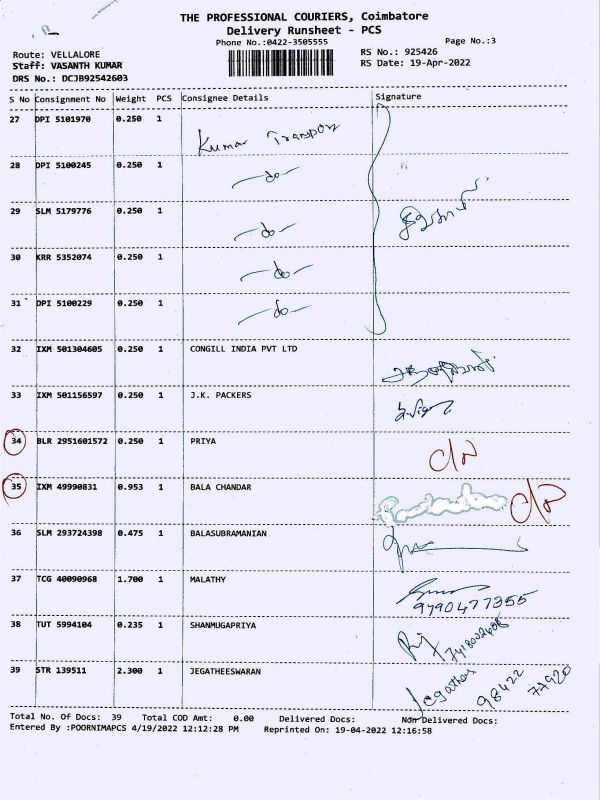 THE PROFESSIONAL COURIERS, Coimbatore
Delivery Runsheet - PCS
Phone No.:0422-3505555
Page No.:3
Route: VELLALORE
RS No.: 925426
Staff: VASANTH KUMAR
RS Date: 19-Apr-2022
DRS No.: DCJB92542603
S No Consignment No Weight PCS Consignee Details Signature
27 DPI 5101970 0.250 1 Kumar Transport
28 DPI 5100245 0.250 1 -do-
29 SLM 5179776 0.250 1 -do-
30 KRR 5352074 0.250 1 -do-
31 DPI 5100229 0.250 1 -do-
32 IXM 501304605 0.250 1 CONGILL INDIA PVT LTD
33 IXM 501156597 0.250 1 J.K. PACKERS
34 BLR 2951601572 0.250 1 PRIYA
35 IXM 49990831 0.953 1 BALA CHANDAR
36 SLM 293724398 0.475 1 BALASUBRAMANIAN
37 TCG 40090968 1.700 1 MALATHY
9790477355
38 TUT 5994104 0.235 1 SHANMUGAPRIYA
39 STR 139511 2.300 1 JEGATHEESWARAN Jegathees 98422 77920
Total No. Of Docs: 39 Total COD Amt: 0.00 Delivered Docs: Non Delivered Docs:
Entered By :POORNIMAPCS 4/19/2022 12:12:28 PM Reprinted On: 19-04-2022 12:16:58